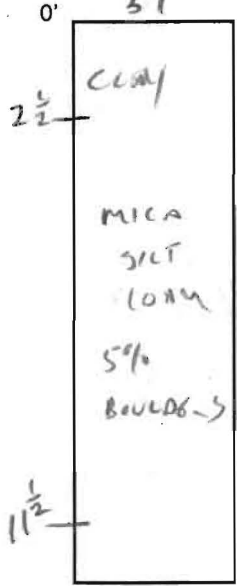 0'
CLAY
2 1/2
MICA
SILT
LOAM
5%
BOULDERS
11 1/2